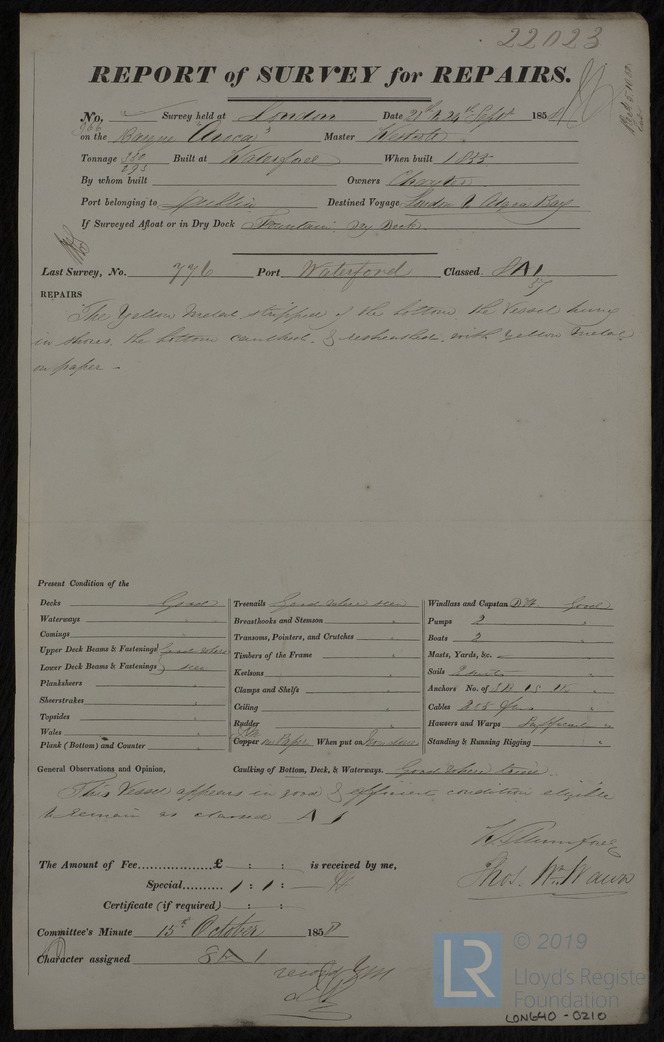 22023
REPORT of SURVEY for REPAIRS.
No, Survey held at London Date 21st & 24th Sept 1858
966
on the Barque "Avoca" Master
Tonnage 350 Built at Waterford When built 1855
293
By whom built Owners
Port belonging to Dublin Destined Voyage London Algoa Bay
If Surveyed Afloat or in Dry Dock Fountain Dry Dock
Last Survey, No. 776 Port Waterford Classed 8 A 1
57
REPAIRS
The Yellow Metal stripped of the bottom the Vessel hung
in shores, the bottom caulked & resheathed with Yellow Metal
on paper -
Present Condition of the
Decks Good Treenails Good where seen Windlass and Capstan Good
Waterways Breasthooks and Stemson Pumps 2
Comings Transoms, Pointers, and Crutches Boats 2
Upper Deck Beams & Fastenings Good where Timbers of the Frame Masts, Yards, &c.
Lower Deck Beams & Fastenings seen Keelsons Sails 2 suits
Planksheers Clamps and Shelfs Anchors No. of
Sheerstrakes Ceiling Cables
Topsides Rudder Hawsers and Warps Sufficient
Wales Copper on Paper When put on Now done Standing & Running Rigging
Plank (Bottom) and Counter
General Observations and Opinion, Caulking of Bottom, Deck, & Waterways. Good where tried
This Vessel appears in good & efficient condition eligible
to remain as classed A 1
Thos. Wm. Wawn
The Amount of Fee................£ : : is received by me,
Special.......... 1 : 1 :
Certificate (if required) : :
Committee's Minute 15th October 1858
Character assigned 8 A 1
LR © 2019
Lloyd's Register
Foundation
LON640-0210